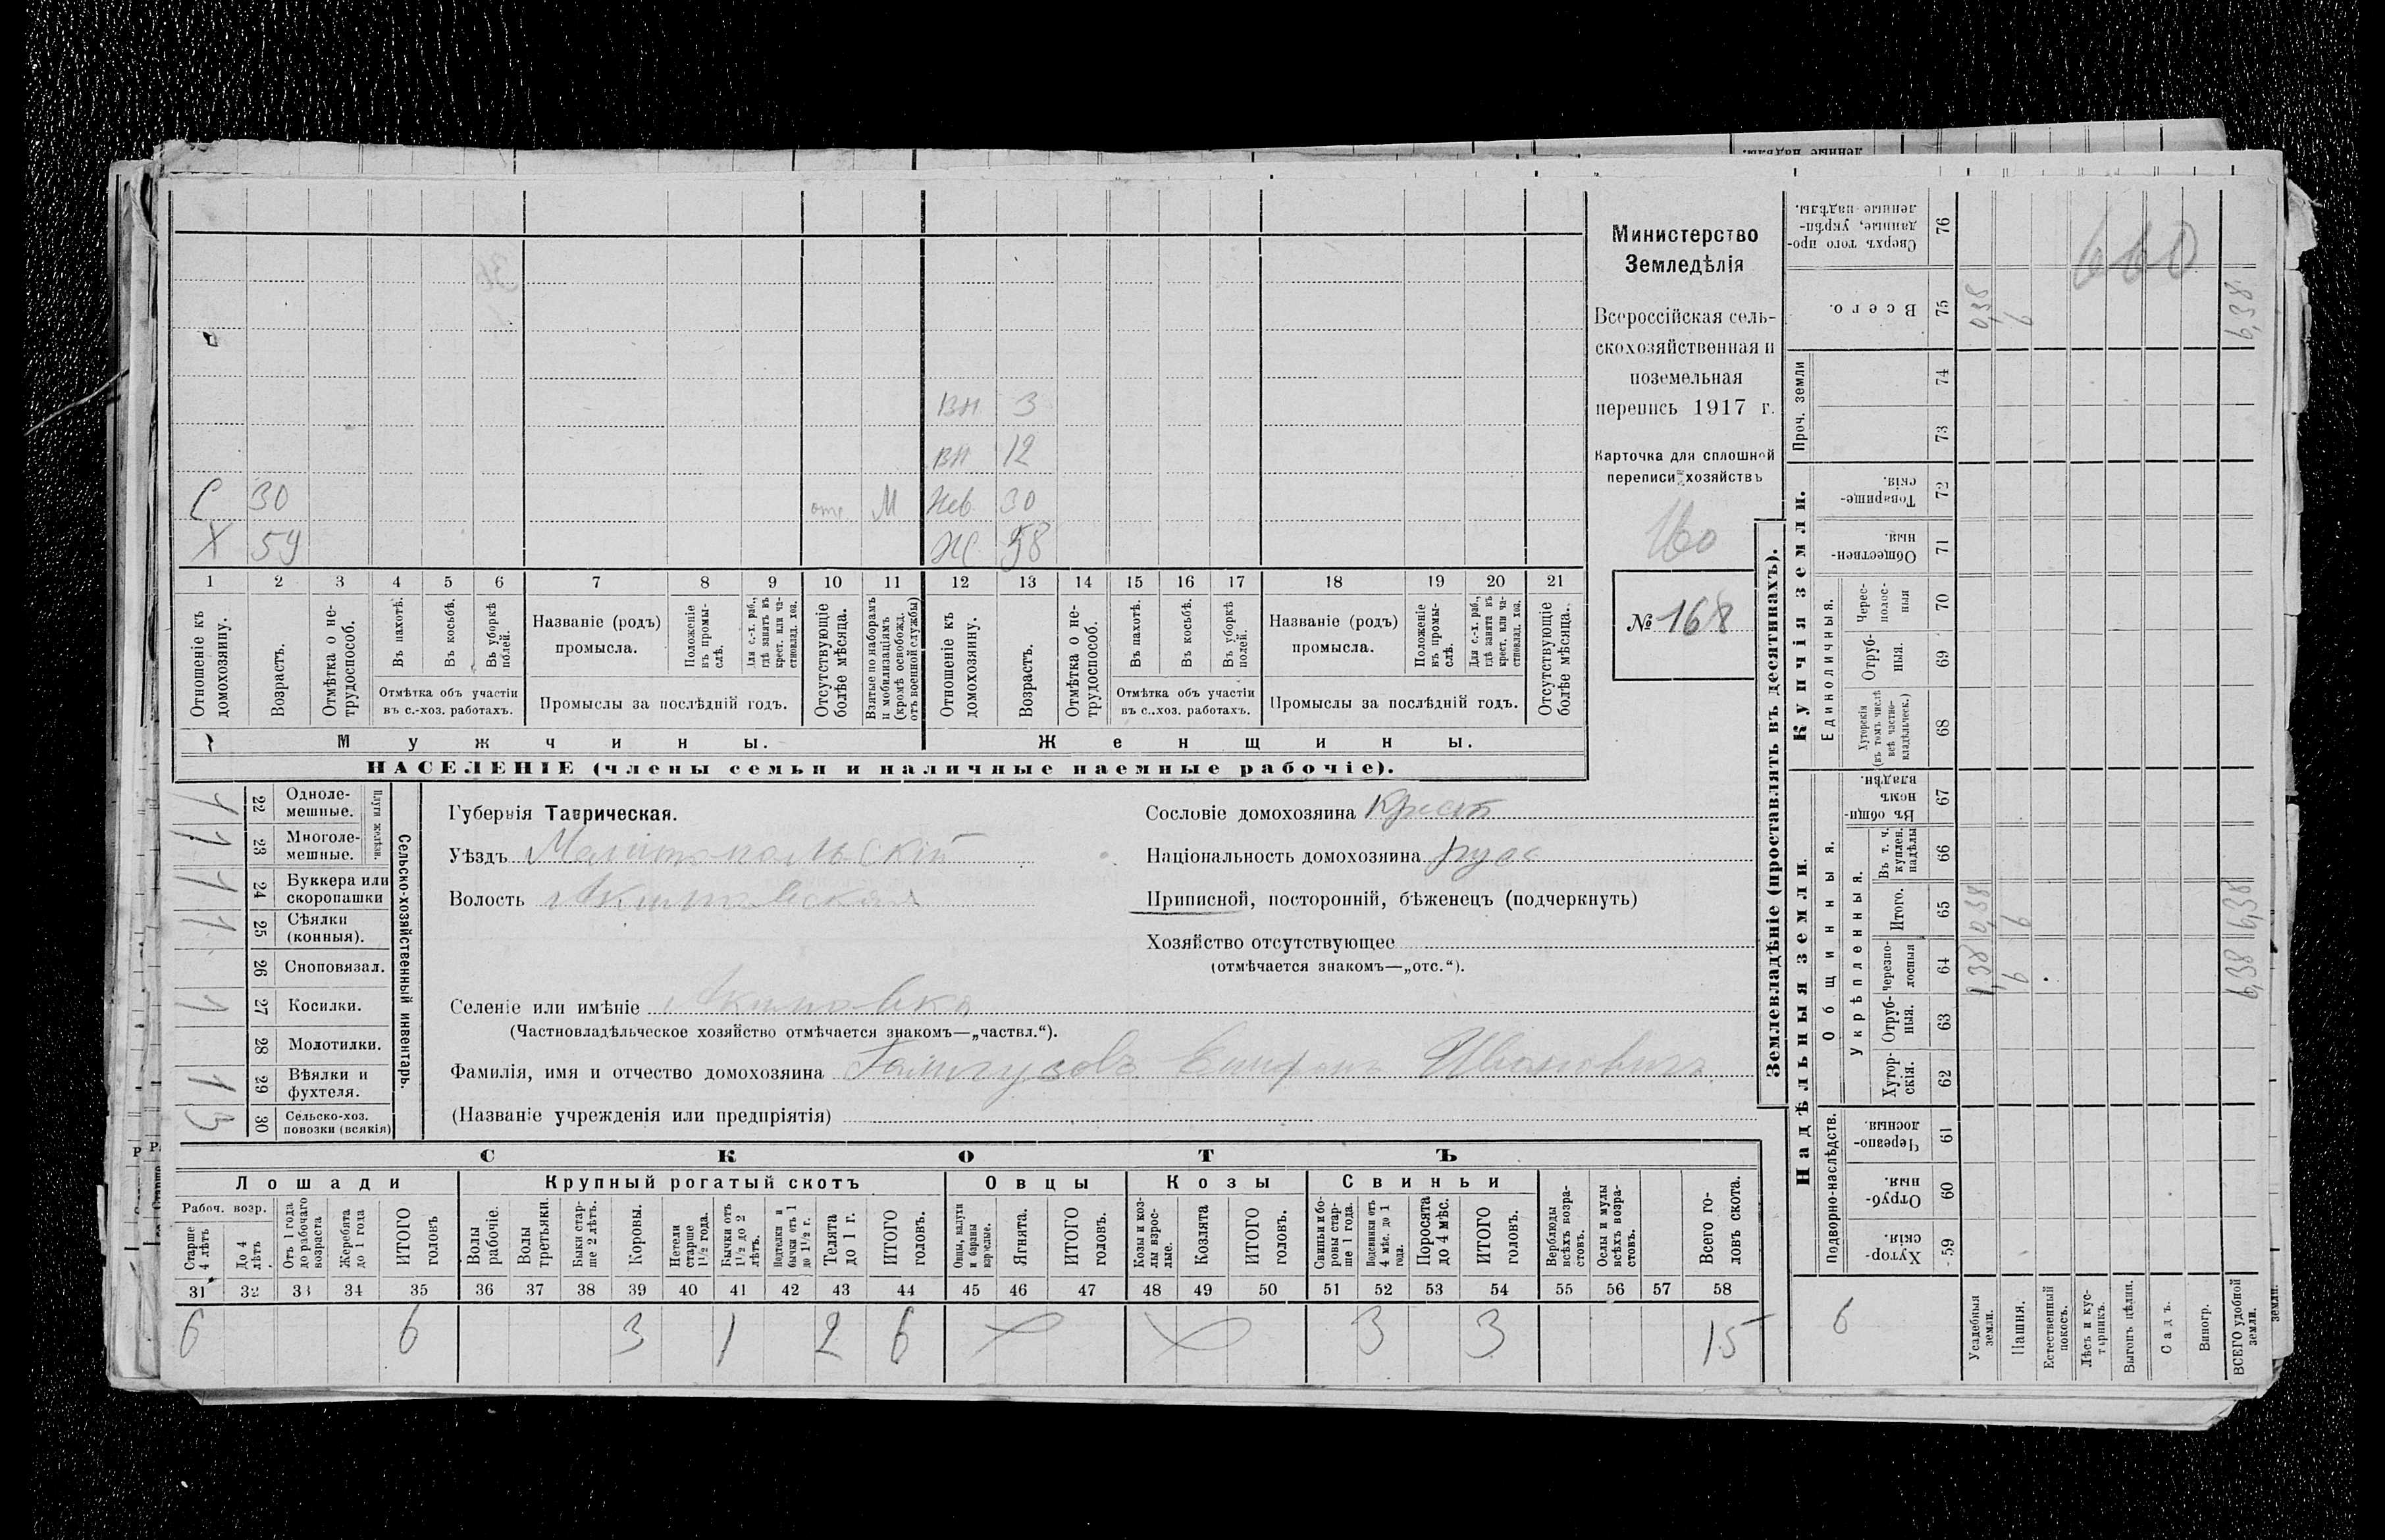 Министерство
Земледѣлія
Всероссійская сель-
скохозяйственная и
поземельная
перепись 1917 г.
Карточка для сплошной
переписи хозяйствъ
160
№ 168
вн. 3
вн 12
С 30 отс. М Нев. 30
Х 59 Ж 58
1 2 3 4 5 6 7 8 9 10 11 12 13 14 15 16 17 18 19 20 21
Отношеніе къ домохозяину.
Возрастъ.
Отмѣтка о не-трудоспособ.
Въ пахотѣ.
Въ косьбѣ.
Въ уборкѣ полей.
Отмѣтка объ участіи въ с.-хоз. работахъ.
Названіе (родъ) промысла.
Положеніе въ промы-слѣ.
Для с.-х. раб., гдѣ занятъ въ крест. или ча-стновлад. хоз.
Промыслы за послѣдній годъ.
Отсутствующіе болѣе мѣсяца.
Взятые по наборамъ и мобилизаціямъ (кромѣ освобожд. отъ военной службы)
Отношеніе къ домохозяину.
Возрастъ.
Отмѣтка о не-трудоспособ.
Въ пахотѣ.
Въ косьбѣ.
Въ уборкѣ полей.
Отмѣтка объ участіи въ с.-хоз. работахъ.
Названіе (родъ) промысла.
Положеніе въ промы-слѣ.
Для с.-х. раб., гдѣ занята въ крест. или ча-стновлад. хоз.
Промыслы за послѣдній годъ.
Отсутствующіе болѣе мѣсяца.
Мужчины. Женщины.
НАСЕЛЕНІЕ (члены семьи и наличные наемные рабочіе).
Сельско-хозяйственный инвентарь.
Плуги желѣзн.
22 Одноле-мешные. 1
23 Многоле-мешные. 1
24 Буккера или скоропашки 1
25 Сѣялки (конныя). 1
26 Сноповязал.
27 Косилки. 1
28 Молотилки.
29 Вѣялки и фухтеля. 1
30 Сельско-хоз. повозки (всякія) 3
Губернія Таврическая.
Уѣздъ Мелитопольскій
Волость Акимовская
Селеніе или имѣніе Акимовка
(Частновладѣльческое хозяйство отмѣчается знакомъ—„частвл.“).
Фамилія, имя и отчество домохозяина Епифанъ Ивановичъ
(Названіе учрежденія или предпріятія)
Сословіе домохозяина Крест
Національность домохозяина русс
Приписной, посторонній, бѣженецъ (подчеркнуть)
Хозяйство отсутствующее
(отмѣчается знакомъ—„отс.“).
СКОТЪ
Лошади Крупный рогатый скотъ Овцы Козы Свиньи
Рабоч. возр.
Старше 4 лѣтъ
До 4 лѣтъ
Отъ 1 года до рабочаго возраста
Жеребята до 1 года
ИТОГО головъ
Волы рабочіе.
Волы третьяки.
Быки стар-ше 2 лѣтъ.
Коровы.
Нетели старше 1½ года.
Бычки отъ 1½ до 2 лѣтъ.
Подтелки и бычки отъ 1 до 1½ г.
Телята до 1 г.
ИТОГО головъ.
Овцы, валухи и бараны взрослые.
Ягнята.
ИТОГО головъ.
Козы и коз-лы взрос-лые.
Козлята
ИТОГО головъ.
Свиньи и бо-ровы стар-ше 1 года.
Подсвинки отъ 4 мѣс. до 1 года.
Поросята до 4 мѣс.
ИТОГО головъ.
Верблюды всѣхъ возра-стовъ.
Ослы и мулы всѣхъ возра-стовъ.
Всего го-ловъ скота.
31 32 33 34 35 36 37 38 39 40 41 42 43 44 45 46 47 48 49 50 51 52 53 54 55 56 57 58
6 6 3 1 2 6 3 3 15
Землевладѣніе (проставлять въ десятинахъ).
Надѣльныя земли. Купчія земли.
Подворно-наслѣдств.
Общинныя.
Укрѣпленныя.
Единоличныя.
Проч. земли
Хутор-скія. 59
Отруб-ныя. 60
Черезпо-лосныя. 61
Хутор-скія. 62
Отруб-ныя. 63
Черезпо-лосныя 64
Итого. 65
Въ т. ч. куплен. надѣлы 66
Въ общин-номъ владѣн. 67
Хуторскія (въ томъ числѣ всѣ частно-владѣльческ.) 68
Отруб-ныя. 69
Черес-полос-ныя 70
Обществен-ныя. 71
Товарище-скія. 72
73
74
Всего. 75
Сверхъ того про-данные, укрѣп-ленные надѣлы. 76
6
Усадебныя земли. 0,38 0,38
Пашня. 9 9 9
Естественный покосъ.
Лѣсъ и кус-тарникъ.
Выгонъ цѣлин.
Садъ.
Виногр.
ВСЕГО удобной земли. 9,38 9,38 9,38
660